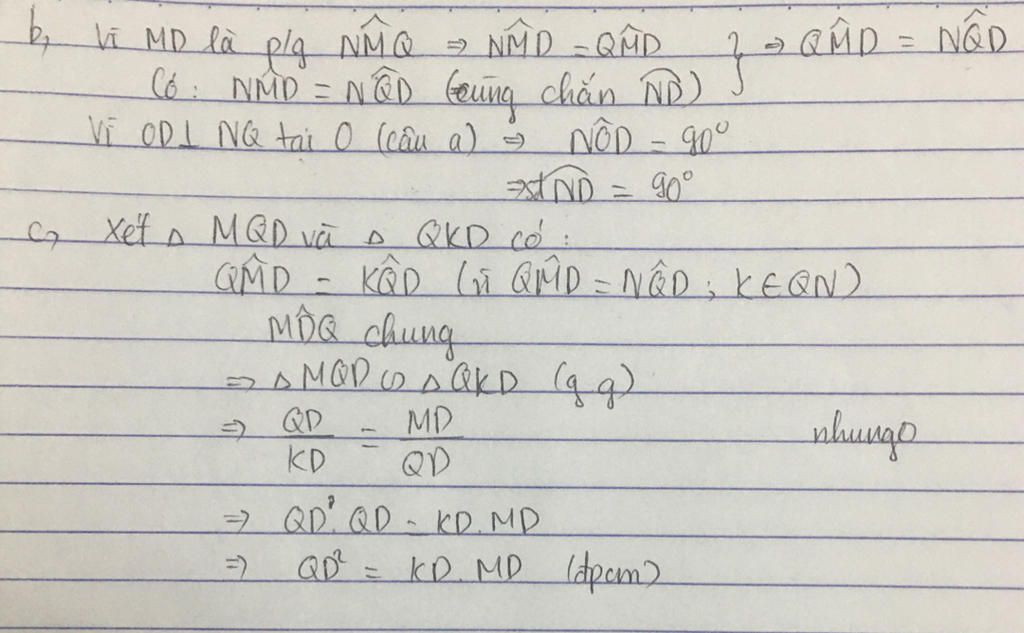 b, Vì MD là p/g NM̂Q ⇒ NM̂D = QM̂D } ⇒ QM̂D = NQ̂D
Có: NM̂D = NQ̂D (cùng chắn N͡D)
Vì OD⊥ NQ tại O (câu a) ⇒ NÔD = 90°
⇒sđ N͡D = 90°
c, Xét △ MQD và △ QKD có:
QM̂D = KQ̂D (vì QM̂D = NQ̂D ; K∈QN)
MD̂Q chung
⇒ △MQD ∽ △QKD (g g)
⇒ QD/KD = MD/QD nhung
⇒ QD.QD = KD.MD
⇒ QD² = KD.MD (đpcm)